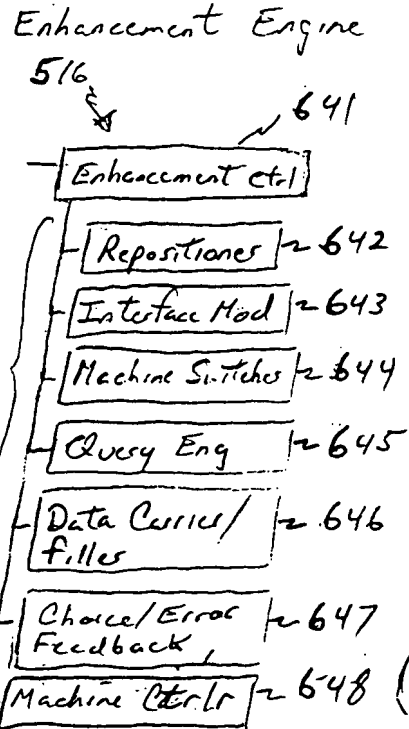 Enhancement Engine
516
641
Enhancement ctrl
Repositioner 642
Interface Mod 643
Machine Switcher 644
Query Eng 645
Data Carrier/ 646
filler
Choice/Error 647
Feedback
Machine Ctrlr 648 (